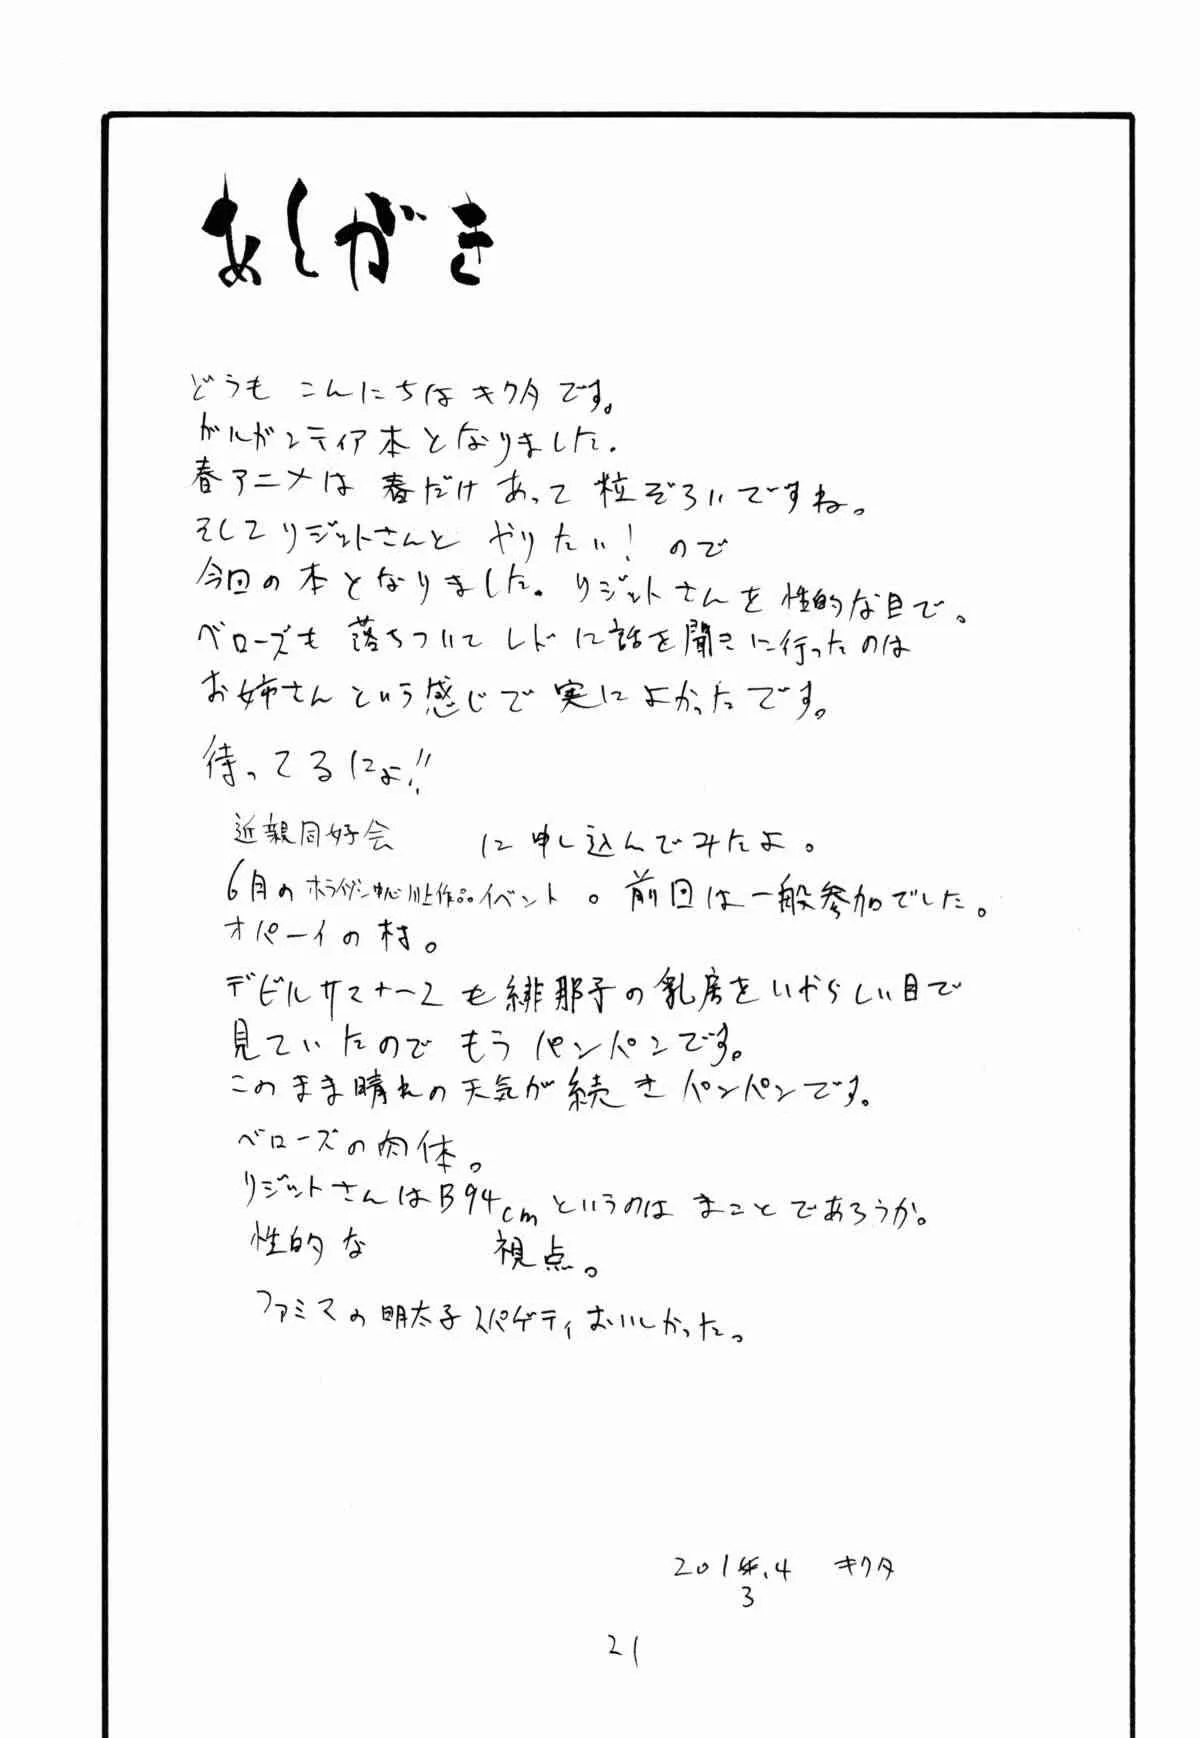 あとがき
どうも こんにちは キクタです。
ガルガンティア本となりました。
春アニメは 春だけあって 粒ぞろいですね。
そしてリジットさんと やりたい! ので
今回の本となりました。リジットさんを性的な目で。
ベローズも 落ちついて レドに話を聞きに行ったのは
お姉さんという感じで 実によかったです。
待ってるにょ!!
近親同好会 に申し込んでみたよ。
6月のホライゾン中心川上作品イベント。前回は一般参加でした。
オパーイの村。
デビルサマナー2も緋那子の乳房をいやらしい目で
見ていたので もう パンパンです。
このまま晴れの天気が続き パンパンです。
ベローズの肉体。
リジットさんはB94cmというのは まことであろうか。
性的な 視点。
ファミマの明太子スパゲティおいしかった。
2013.4 キクタ
21